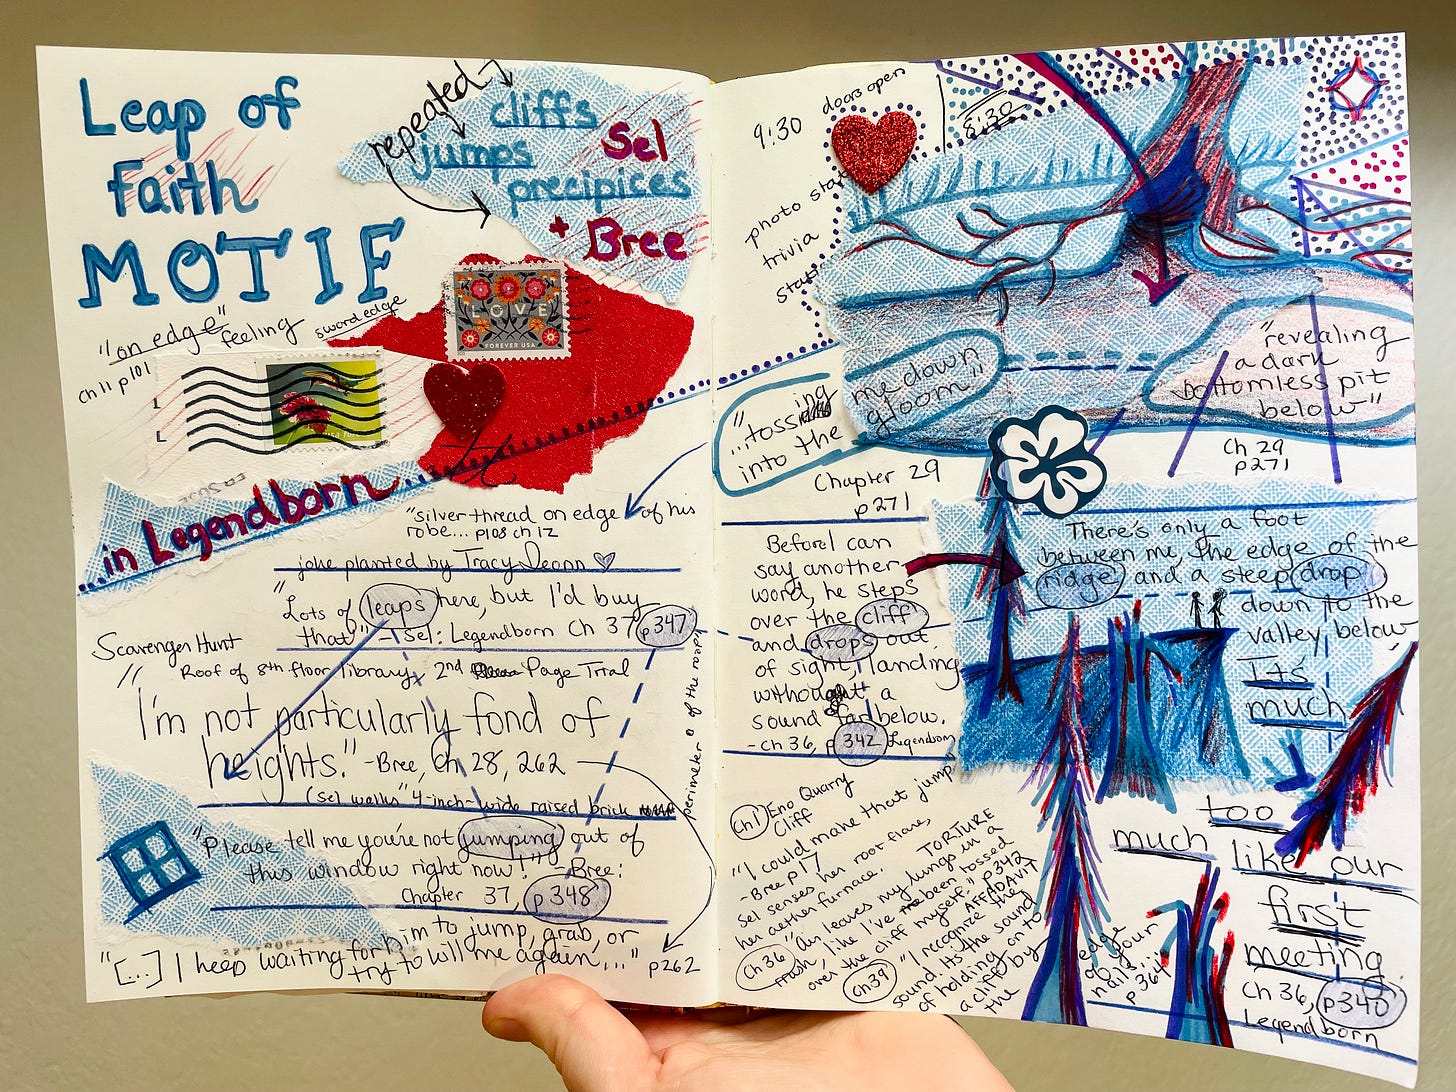 Leap of
Faith
MOTIF
repeated
cliffs
jumps
precipices
Sel
+ Bree
"on edge" feeling
sword edge
ch 11 p101
LOVE
FOREVER USA
...in Legendborn...
"silver thread on edge of his
robe... p108 ch 12
joke planted by Tracy Deonn
"Lots of leaps here, but I'd buy
that" - Sel: Legendborn Ch 37 p347
Scavenger Hunt
Roof of 8th floor library, 2nd Page Trial
"I'm not particularly fond of
heights." -Bree, Ch 28, 262
(Sel walks "4-inch-wide raised brick
perimeter of the roof
"Please tell me you're not jumping out of
this window right now!" Bree:
Chapter 37, p348
"[...] I keep waiting for him to jump, grab, or
try to will me again,..." p262
9:30
doors open
8:30
photo stat
trivia
stat
"...tossing
into the
me down
gloom"
Chapter 29
p271
"revealing
a dark
bottomless pit
below"
Ch 29
p271
Before I can
say another
word, he steps
over the cliff
and drops out
of sight, landing
without a
sound far below.
-Ch 36, p 342 Legendborn
There's only a foot
between me, the edge of the
ridge and a steep drop
down to the
valley below
Its
much
too
much like our
first
meeting.
Ch 36, p340
Legendborn
Ch 1 Eno Quarry
Cliff
"I could make that jump
-Bree p17
Sel senses her root flare,
her aether furnace. TORTURE
Ch 36 "An leaves my lungs in a
rush, like I've been tossed
over the cliff myself." p342
Ch 39 "I recognize the
sound. Its the sound
of holding on to
a cliff by
the
edge
of your
nails...
p 364